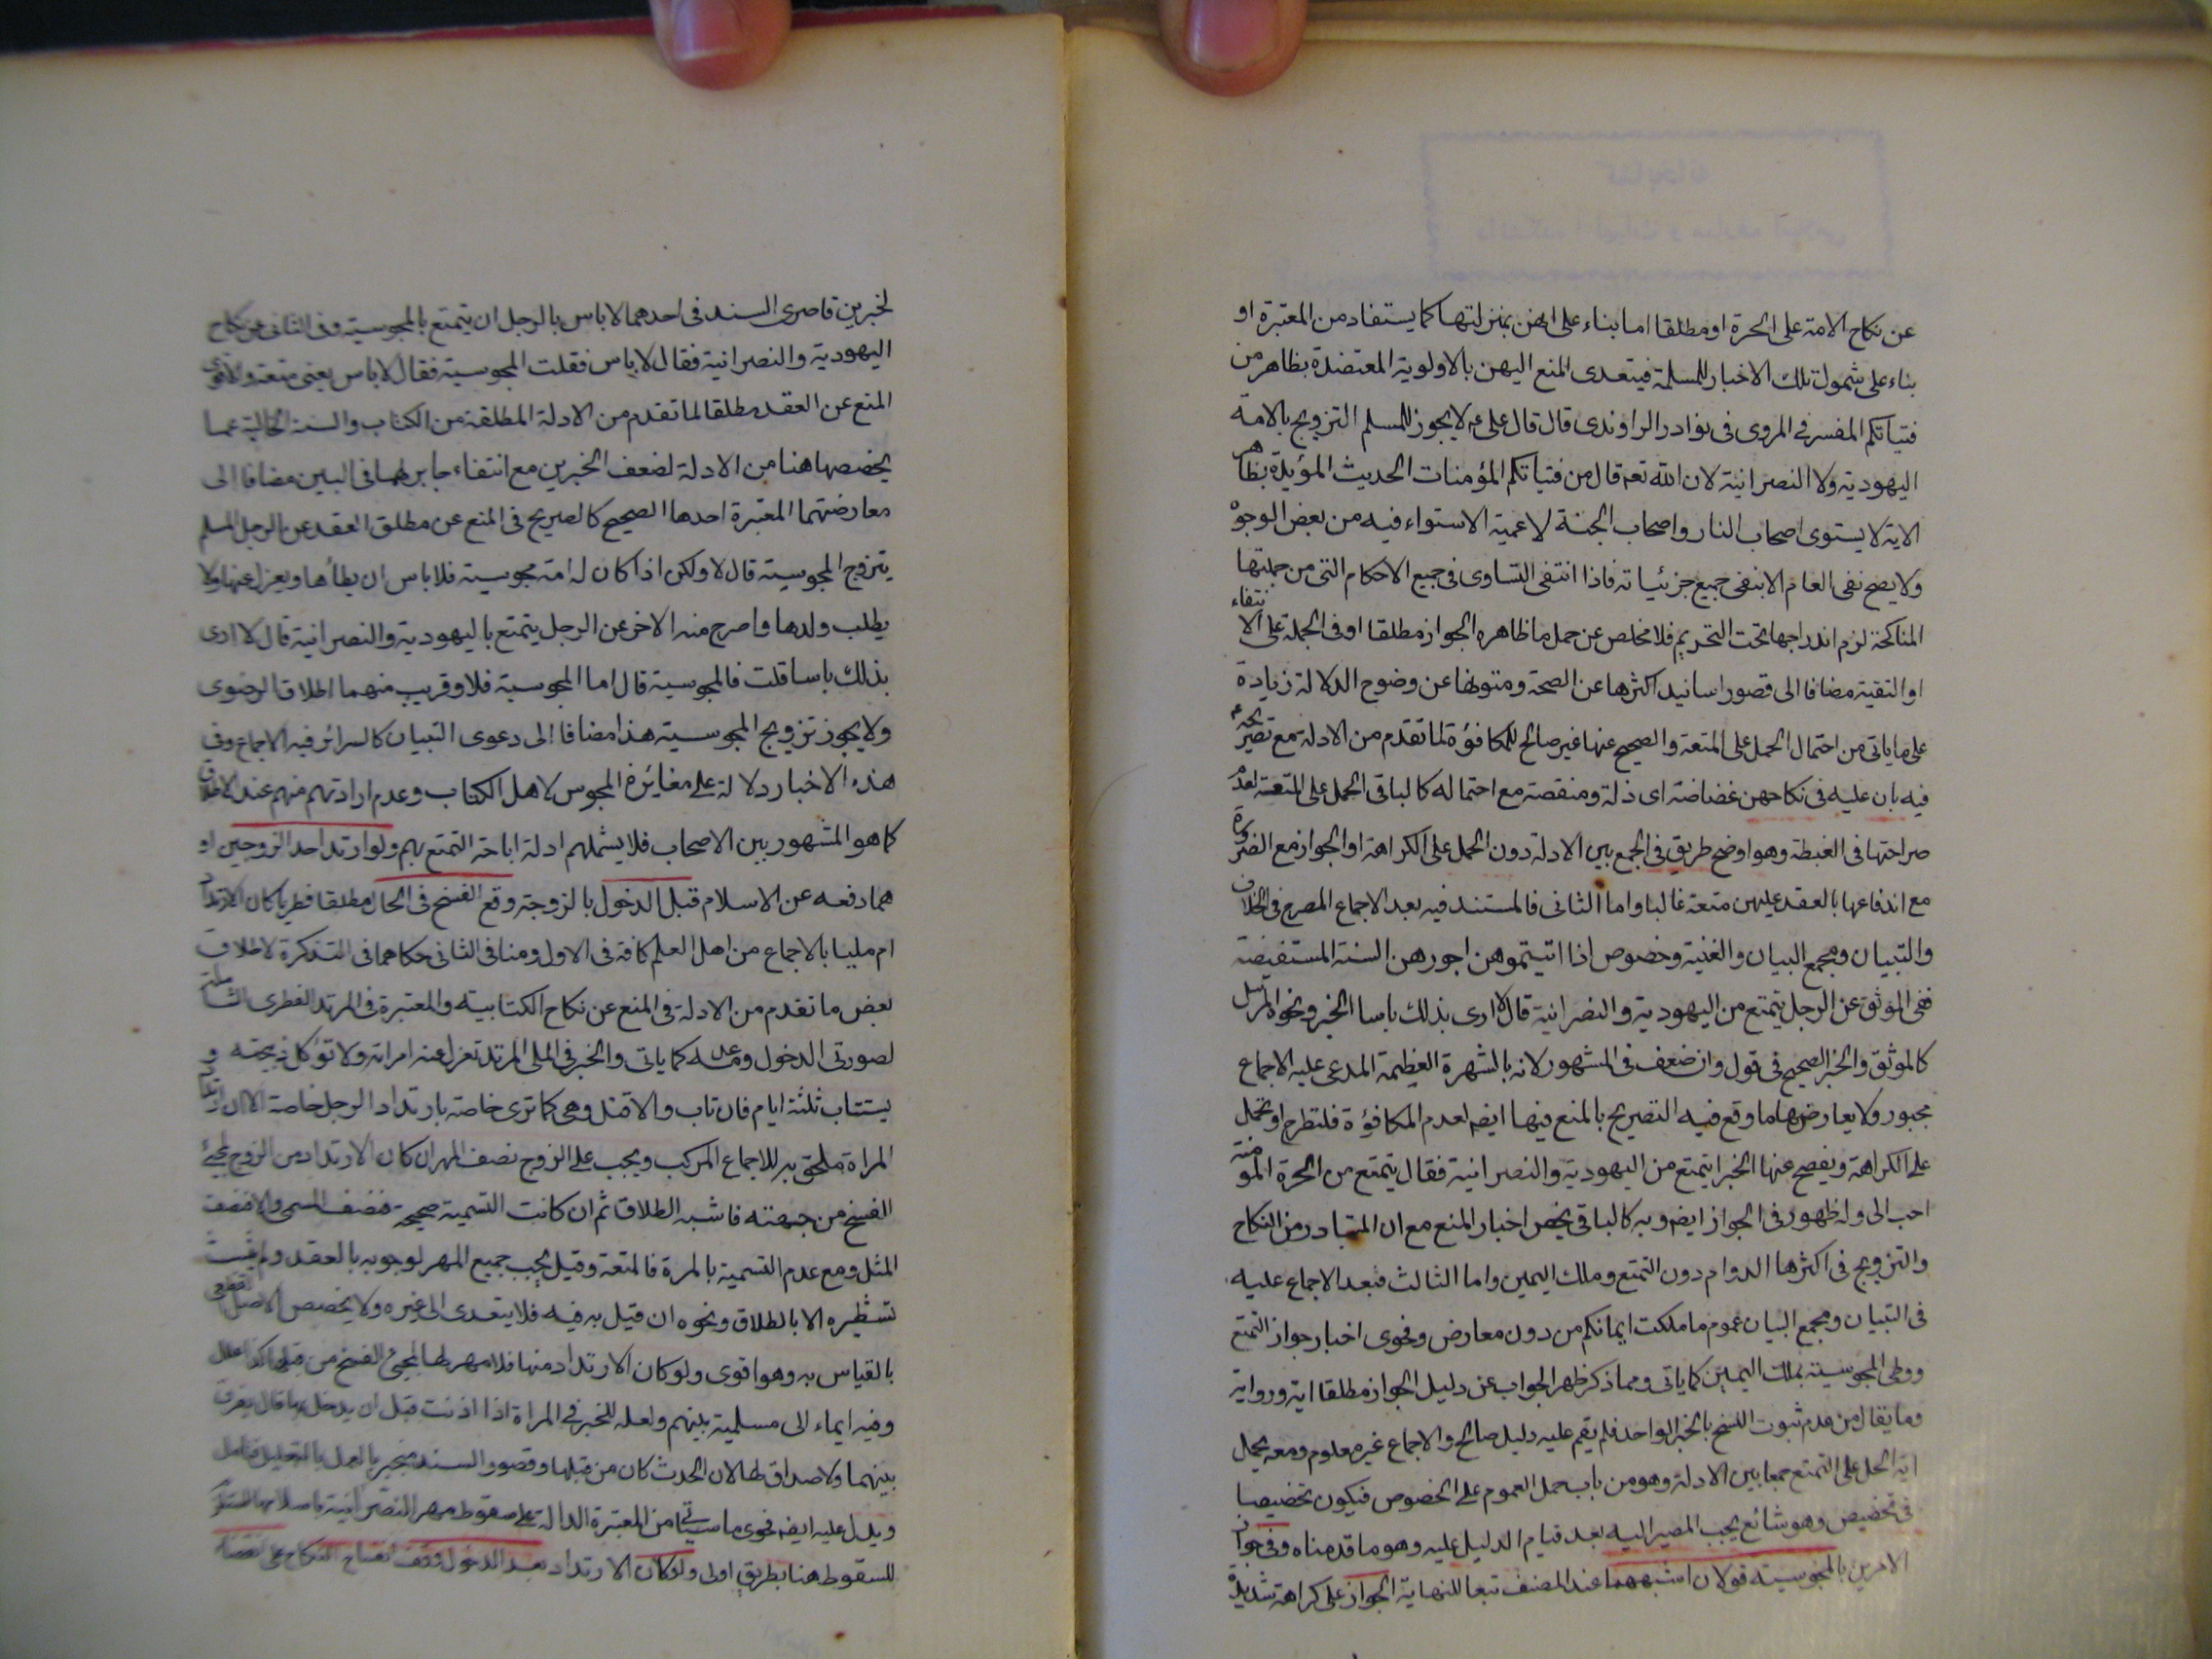 عن نكاح الامة على الحرة او مطلقا اما بناء على انهن بمنزلتها كما يستفاد من المعتبرة او
بناء على شمول تلك الاخبار للمسلمة فيتعدى المنع اليهن بالاولوية المعتضدة بظاهر من
فتياتكم المفسر في المروى فى نوادر الراوندى قال قال على ع لا يجوز للمسلم التزويج بالامة
اليهودية ولا النصرانية لان الله تعم قال من فتياتكم المؤمنات الحديث المؤيدة بظاهر
الاية لا يستوى اصحاب النار واصحاب الجنة لاعمية الاستواء فيه من بعض الوجوه
ولا يصح نفى العام الا بنفى جميع جزئياته فاذا انتفى التساوى فى جميع الاحكام التى من جملتها
المناكحة لزم اندراجها تحت التحريم فلا مخلص عن حمل ما ظاهره الجواز مطلقا او فى الجملة على الاتقاء
او التقية مضافا الى قصور اسانيد اكثرها عن الصحة ومتونها عن وضوح الدلالة زيادة
على ما ياتى من احتمال الحمل على المتعة والصحيح عنها غير صالح للمكافؤة لما تقدم من الادلة مع تصريحه
فيه بان عليه فى نكاحهن غضاضة اى ذلة ومنقصة مع احتماله كالباقى الحمل على المتعة لعدم
صراحتها فى الغبطة وهو اوضح طريق فى الجمع بين الادلة دون الحمل على الكراهة او الجواز مع الضرورة
مع اندفاعها بالعقد عليهن متعة غالبا واما الثانى فالمستند فيه بعد الاجماع المصرح فى الخلاف
والتبيان ومجمع البيان والغنية وخصوص اذا اتيتموهن اجورهن السنة المستفيضة
ففى الموثق عن الرجل يتمتع من اليهودية والنصرانية قال لا ارى بذلك باسا الخبر ونحوه المرسل
كالموثق والخبر الصحيح فى قول وان ضعف فى المشهور لانه بالشهرة العظيمة المدعى عليه الاجماع
مجبور ولا يعارضها ما وقع فيه التصريح بالمنع فيها ايضا لعدم المكافؤة فلتطرح او تحمل
على الكراهة ويفصح عنها الخبر ايتمتع من اليهودية والنصرانية فقال يتمتع من الحرة المؤمنة
احب الى وله ظهور فى الجواز ايضا وبه كالباقى يخص اخبار المنع مع ان المتبادر من النكاح
والتزويج فى اكثرها الدوام دون التمتع وملك اليمين واما الثالث فبعد الاجماع عليه
فى التبيان ومجمع البيان عموم ما ملكت ايمانكم من دون معارض وفحوى اخبار جواز التمتع
ووطى المجوسية بملك اليمين كما ياتى ومما ذكر ظهر الجواب عن دليل الجواز مطلقا اية ورواية
وما يقال من عدم ثبوت النسخ بالخبر الواحد فلم يقم عليه دليل صالح والاجماع غير معلوم ومعه يحمل
اية الحل على التمتع جمعا بين الادلة وهو من باب حمل العموم على الخصوص فيكون تخصيصا
فى تخصيص وهو شائع يجب المصير اليه بعد قيام الدليل عليه وهو ما قدمناه وفى جواز
الامرين بالمجوسية قولان اشبههما عند المصنف تبعا للنهاية الجواز على كراهة شديدة
لخبرين قاصرى السند فى احدهما لا باس بالرجل ان يتمتع بالمجوسية وفى الثانى عن نكاح
اليهودية والنصرانية فقال لا باس فقلت المجوسية فقال لا باس يعنى متعة والاقوى
المنع عن العقد مطلقا لما تقدم من الادلة المطلقة من الكتاب والسنة الخالية عما
يخصصها هنا من الادلة لضعف الخبرين مع انتفاء جابر لهما فى البين مضافا الى
معارضتهما المعتبرة احدها الصحيح كالصريح فى المنع عن مطلق العقد عن الرجل المسلم
يتزوج المجوسية قال لا ولكن اذا كان له امة مجوسية فلا باس ان يطأها ويعزل عنها ولا
يطلب ولدها واصرح منه الاخر عن الرجل يتمتع باليهودية والنصرانية قال لا ارى
بذلك باسا قلت فالمجوسية قال اما المجوسية فلا وقريب منهما اطلاق الرضوى
ولا يجوز تزويج المجوسية هذا مضافا الى دعوى التبيان كالسرائر فيه الاجماع وفى
هذه الاخبار دلالة على مغائرة المجوس لاهل الكتاب وعدم ارادتهم منهم عند الاطلاق
كما هو المشهور بين الاصحاب فلا يشملهم ادلة اباحة التمتع بهم ولو ارتد احد الزوجين او
هما دفعه عن الاسلام قبل الدخول بالزوجة وقع الفسخ فى الحال مطلقا فطريا كان الارتداد
ام مليا بالاجماع من اهل العلم كافة فى الاول ومنا فى الثانى حكاهما فى التذكرة لاطلاق
بعض ما تقدم من الادلة فى المنع عن نكاح الكتابية والمعتبرة فى المرتد الفطرى الشاملة
لصورتى الدخول وعدمه كما ياتى والخبر فى الملى المرتد تعزل عنه امراته ولا تؤكل ذبيحته و
يستتاب ثلثة ايام فان تاب والا قتل وهى كما ترى خاصة بارتداد الرجل خاصة الا ان ارتداد
المراة ملحق به للاجماع المركب ويجب على الزوج نصف المهر ان كان الارتداد من الزوج لمجئ
الفسخ من جهته فاشبه الطلاق ثم ان كانت التسمية صحيحة فنصف المسمى والا فنصف
المثل ومع عدم التسمية بالمرة فالمتعة وقيل يجب جميع المهر لوجوبه بالعقد ولم يثبت
تشطيره الا بالطلاق ونحوه ان قيل به فيه فلا يتعدى الى غيره ولا يخصص الاصل القطعى
بالقياس به وهو اقوى ولو كان الارتداد منها فلا مهر لها لمجئ الفسخ من قبلها كذا علل
وفيه ايماء الى مسلمية بينهم ولعله للخبر فى المراة اذا اذنت قبل ان يدخل بها قال يفرق
بينهما ولا صداق لها لان الحدث كان من قبلها وقصور السند منجبر بالعمل بالتعليل فتامل
ويدل عليه ايضا فحوى ما سياتى من المعتبرة الدالة على سقوط مهر النصرانية باسلامها
للسقوط هنا بطريق اولى ولو كان الارتداد بعد الدخول وقف انفساخ النكاح على انقضاء